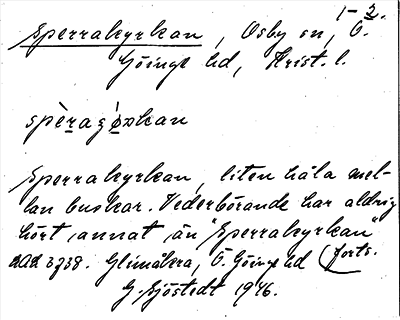 1-2.
Sperrakyrkan, Osby sn, Ö.
Göinge hd, Krist. l.
spèrazo̤̍rkan
Sperrakyrkan, liten håla mel-
lan buskar. Vederbörande har aldrig
hört annat än "Sperrakyrkan"
AAA 3738. Glimåkra, Ö. Göinge hd (forts.
G. Sjöstedt 1946.